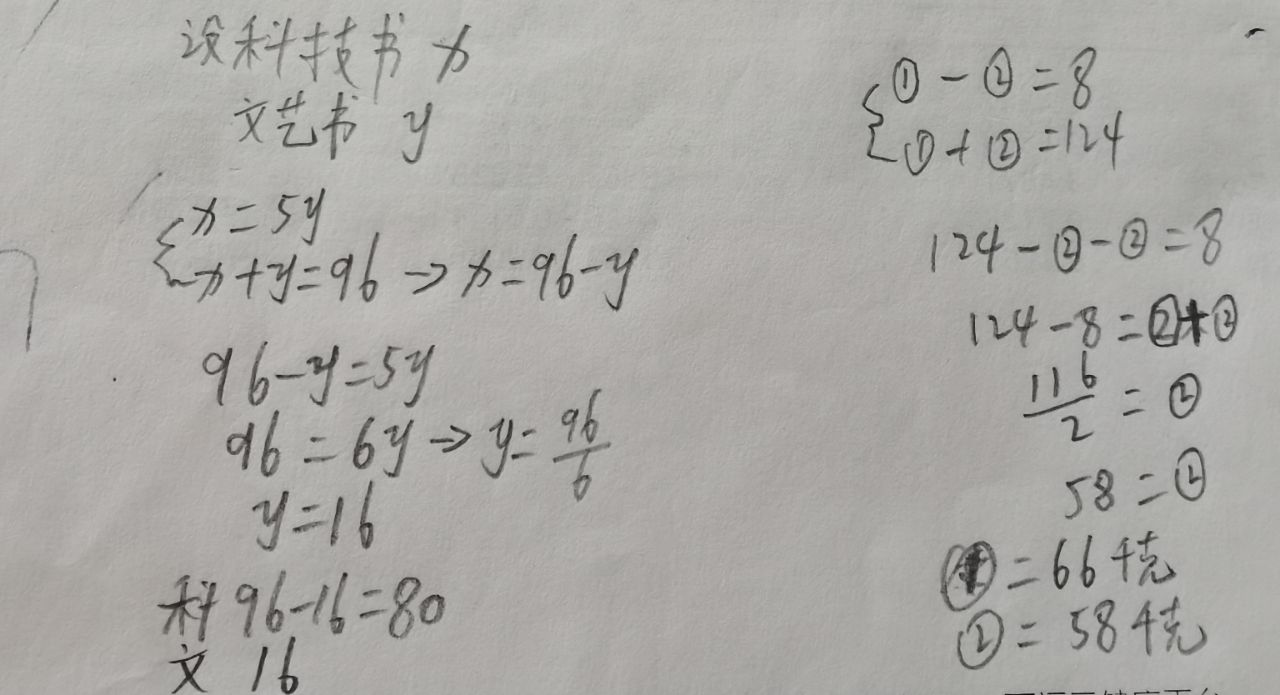 设科技书 x
文艺书 y
x=5y
x+y=96 → x=96-y
96-y=5y
96=6y → y=96/6
y=16
科 96-16=80
文 16
①-②=8
①+②=124
124-②-②=8
124-8=②+②
116/2=②
58=②
①=66千克
②=58千克